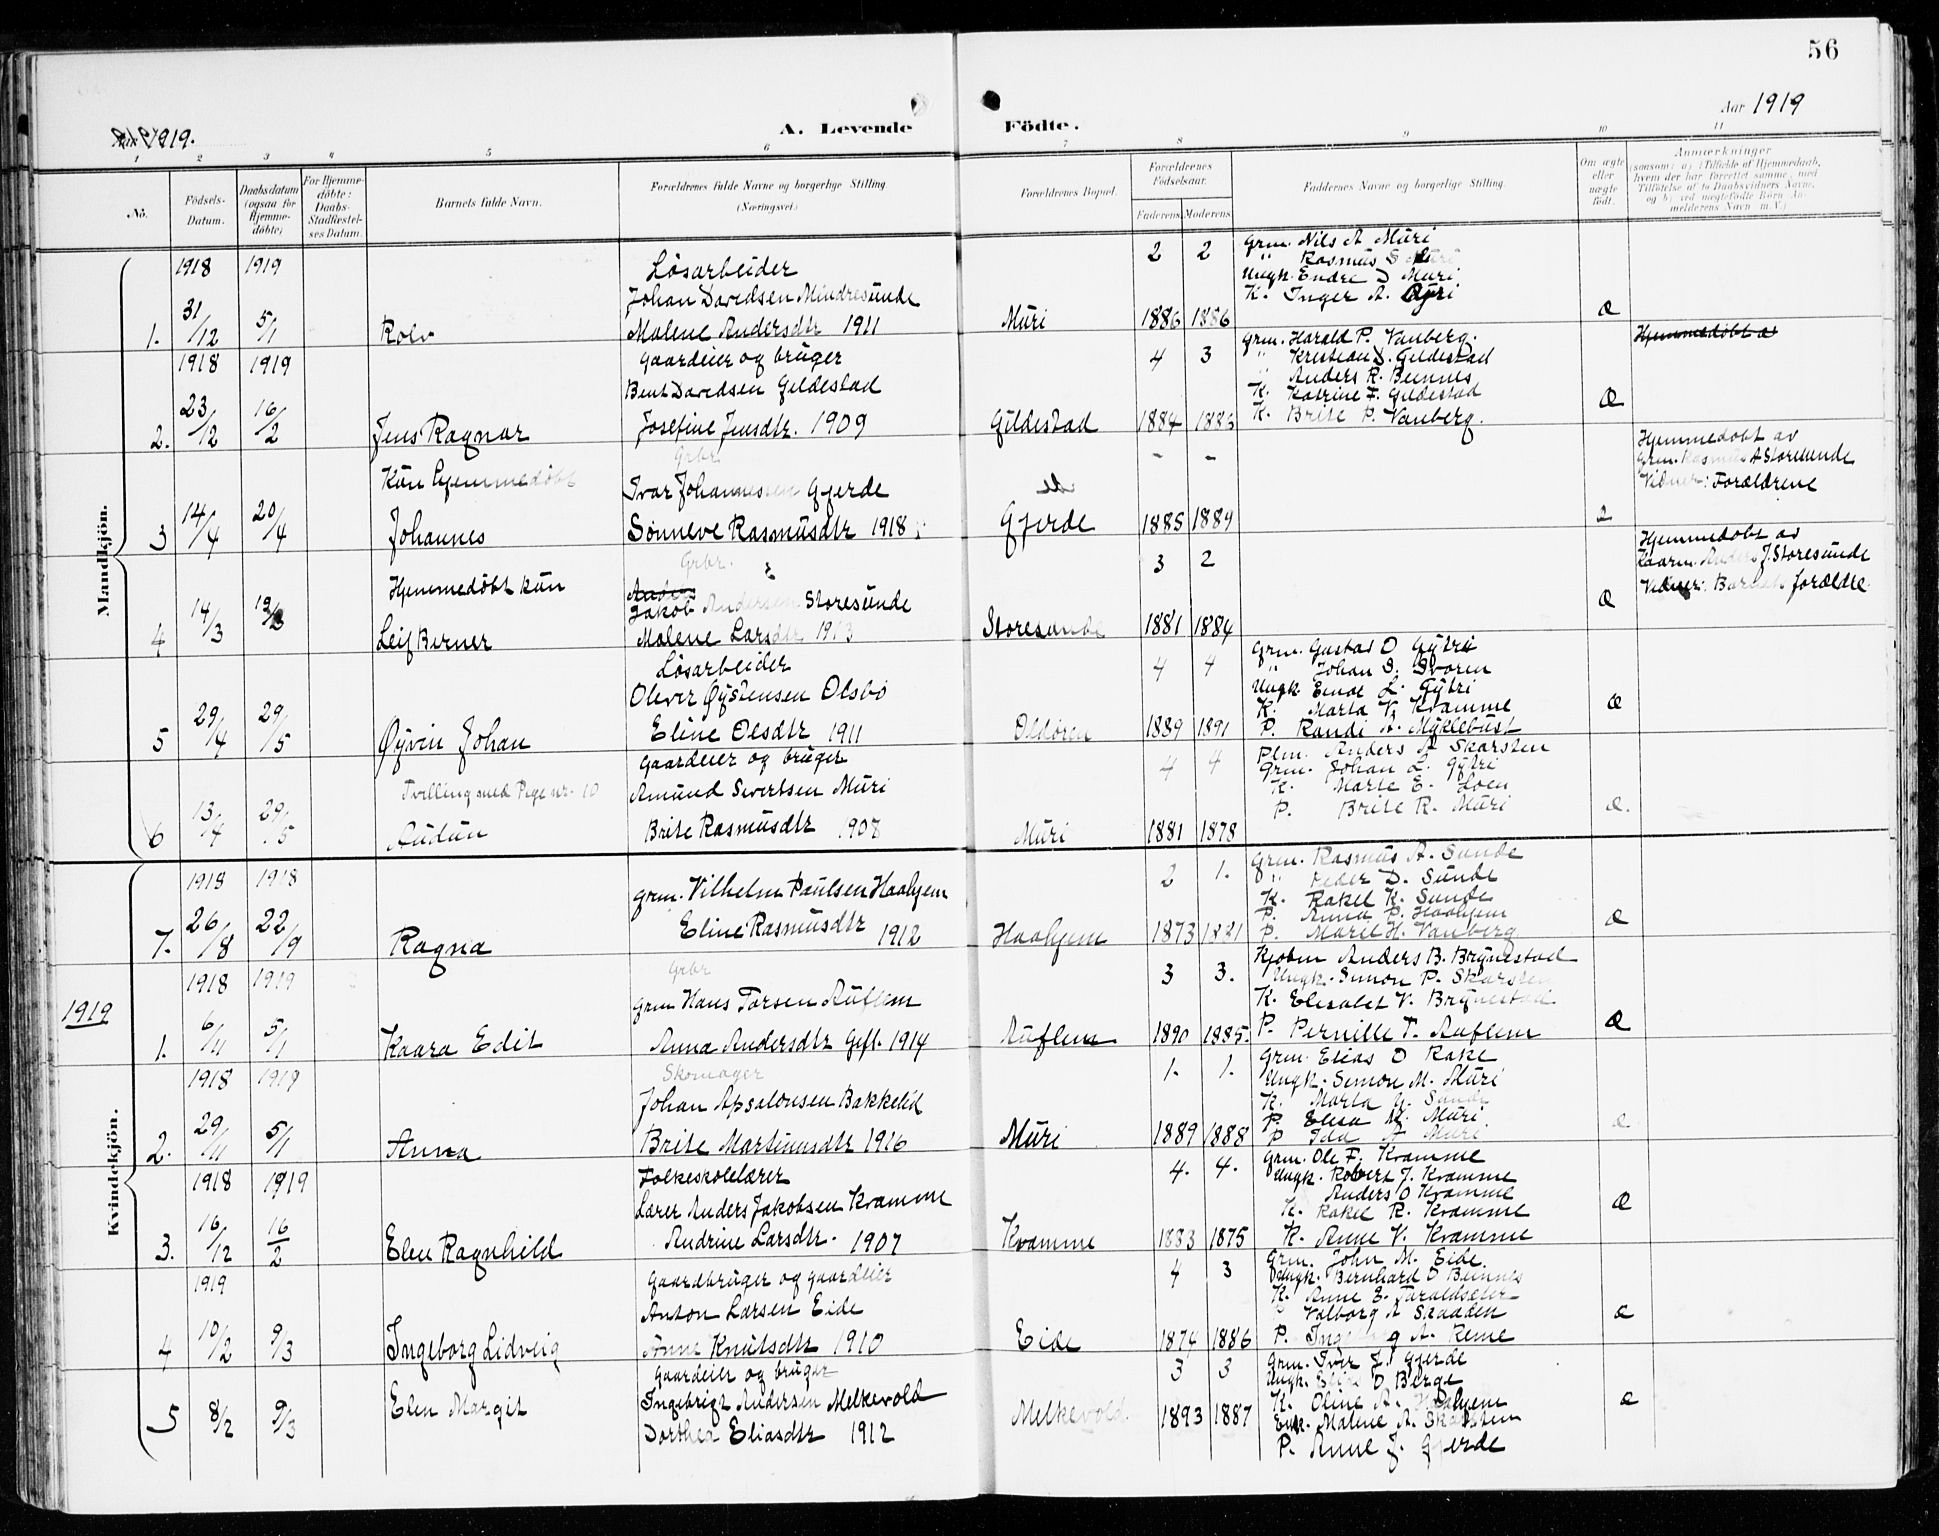 56
Aar 1919
1919.
A. Levende Födte.
1 2 3 4 5 6 7 8 9 10 11
No.
Födsels-Datum.
Daabsdatum (ogsaa for Hjemmedöbte)
For Hjemmedöbte: Daabs-Stadfæstelses Datum.
Barnets fulde Navn.
Forældrenes fulde Navne og borgerlige Stilling (Næringsvei.)
Forældrenes Bopæl.
Forældrenes Födselsaar.
Faderens Moderens
Faddernes Navne og borgerlige Stilling.
Om ægte eller uægte födt.
Anmærkninger
(saasom: a) i Tilfælde af Hjemmedaab, hvem der har forrettet samme, med Tilföielse af to Daabsvidners Navne, og b) ved uægtefödte Börn Anmelderens Navn m. V.)
Mandkjön.
1918 1919
Løsarbeider
Johan Davidsen Mindresunde
1. 31/12 5/1 Rolv
Malene Andersdtr 1911
Muri
2 2
1886 1886
Grm. Nils A Muri
" Rasmus S Muri
Ungk. Endre D Muri
K. Inger A.
Æ
1918 1919
Gaardeier og bruger
Bent Davidsen Gildestad
2. 23/12 16/2 Jens Ragnar
Josefine Jensdtr. 1909
Gildestad
4 3
1884 1886
Grm. Harald P. Vanberg.
" Kristian D. Gildestad
" Anders R. Beinnes
K. Katrine F. Gildestad
K. Brite P. Vanberg.
Æ
Hjemmedøbt av
Kun hjemmedøbt
Grbr
Ivar Johannessen Gjerde
3 14/4 20/4 Johannes
Sønneve Rasmusdtr 1918
Gjerde
- -
1885 1889
Hjemmedøbt av
Grm. Rasmus A Storesunde
Vidner: Forældrene
Hjemmedøbt kun
Grbr.
Anders
Jakob Andersen Storesunde
4 14/3 19/3 Leif Berner
Malene Larsdtr 1913
Storesunde
3 2
1881 1884
Æ
Hjemmedøbt av
Kaarm. Anders J. Storesunde
Vidner: Barnets forældre.
Løsarbeider
Oliver Øystensen Olsbø
5 29/4 29/5 Øyvin Johan
Eline Olsdtr 1911
Oldøren
4 4
1889 1891
Grm. Gustav O Gytri
" Johan D. Svoren
Ungk. Einar L. Gytri
K. Marta V. Kvamme
P. Randi A. Myklebust
Æ
Gaardeier og bruger
Tvilling med Pige nr. 10
Amund Sivertsen Muri
6 13/4 29/5 Audun
Brite Rasmusdtr 1908
Muri
4 4
1881 1878
Plm. Anders A Skarsten
Grm. Johan L. Gytri
K. Marte E. Loen
P. Brite R. Muri
Æ.
Kvindekjön.
1918 1918
Grm. Vilhelm Paulsen Haahjem
7. 26/8 22/9 Ragna
Eline Rasmusdtr 1912
Haahjem
2 1.
1873 1881
Grm. Rasmus A. Sunde
" Peder D. Sunde
K. Rakel K. Sunde
P. Anna P. Haahjem
P. Marie H. Vanberg
Æ
1919
1918 1919
Grbr
Grm Hans Torsen Auflem
1. 6/11 5/1 Kaara Edit
Anna Andersdtr Gift. 1914
Auflem
3 3.
1890 1885.
Kjøbm Anders B. Brynestad
Ungk. Simon P. Skarsten
K. Elisabet V. Brynestad
P. Pernille T. Auflem
Æ
1918 1919
Skomager
Johan Apsalonsen Bakkelid
2. 29/11 5/1 Anna
Brite Martinusdtr 1916
Muri
1. 1.
1889 1888
Grm. Elias D Rake
Ungk. Simon M. Muri
K. Marta N. Sunde
P. Elisa M. Muri.
P Ida A Muri
Æ
1918 1919
Folkeskolelærer
Lærer Anders Jakobsen Kvamme
3. 16/12 16/2 Elen Ragnhild
Andrine Larsdtr. 1907
Kvamme
4. 4.
1883 1875
Grm. Ole F. Kvamme
Ungk. Robert J. Kvamme
Anders O Kvamme
K. Rakel R. Kvamme
K. Anne V. Kvamme
Æ
1919
Gaardbruger og gaardeier
Anton Larsen Eide
4 10/2 9/3 Ingeborg Lidveig
Anne Knutsdtr 1910
Eide
4 3
1874 1886
Grm. John M. Eide.
Ungk. Bernhard D Beinnes
K. Anne E. Taraldseter
Valborg A Skaaden
P. Ingeborg A. Reme
Æ
Gaardeier og bruger
Ingebrigt Andersen Melkevold
5 8/2 9/3 Elen Margit
Dorthea Eliasdtr 1912
Melkevold
3 3
1893 1887
Grm. Iver J. Gjerde
Ungk. Elias D Berge
K. Oline A. Haahjem
Enk. Malene A. Skarsten
P. Anne J. Gjerde
Æ